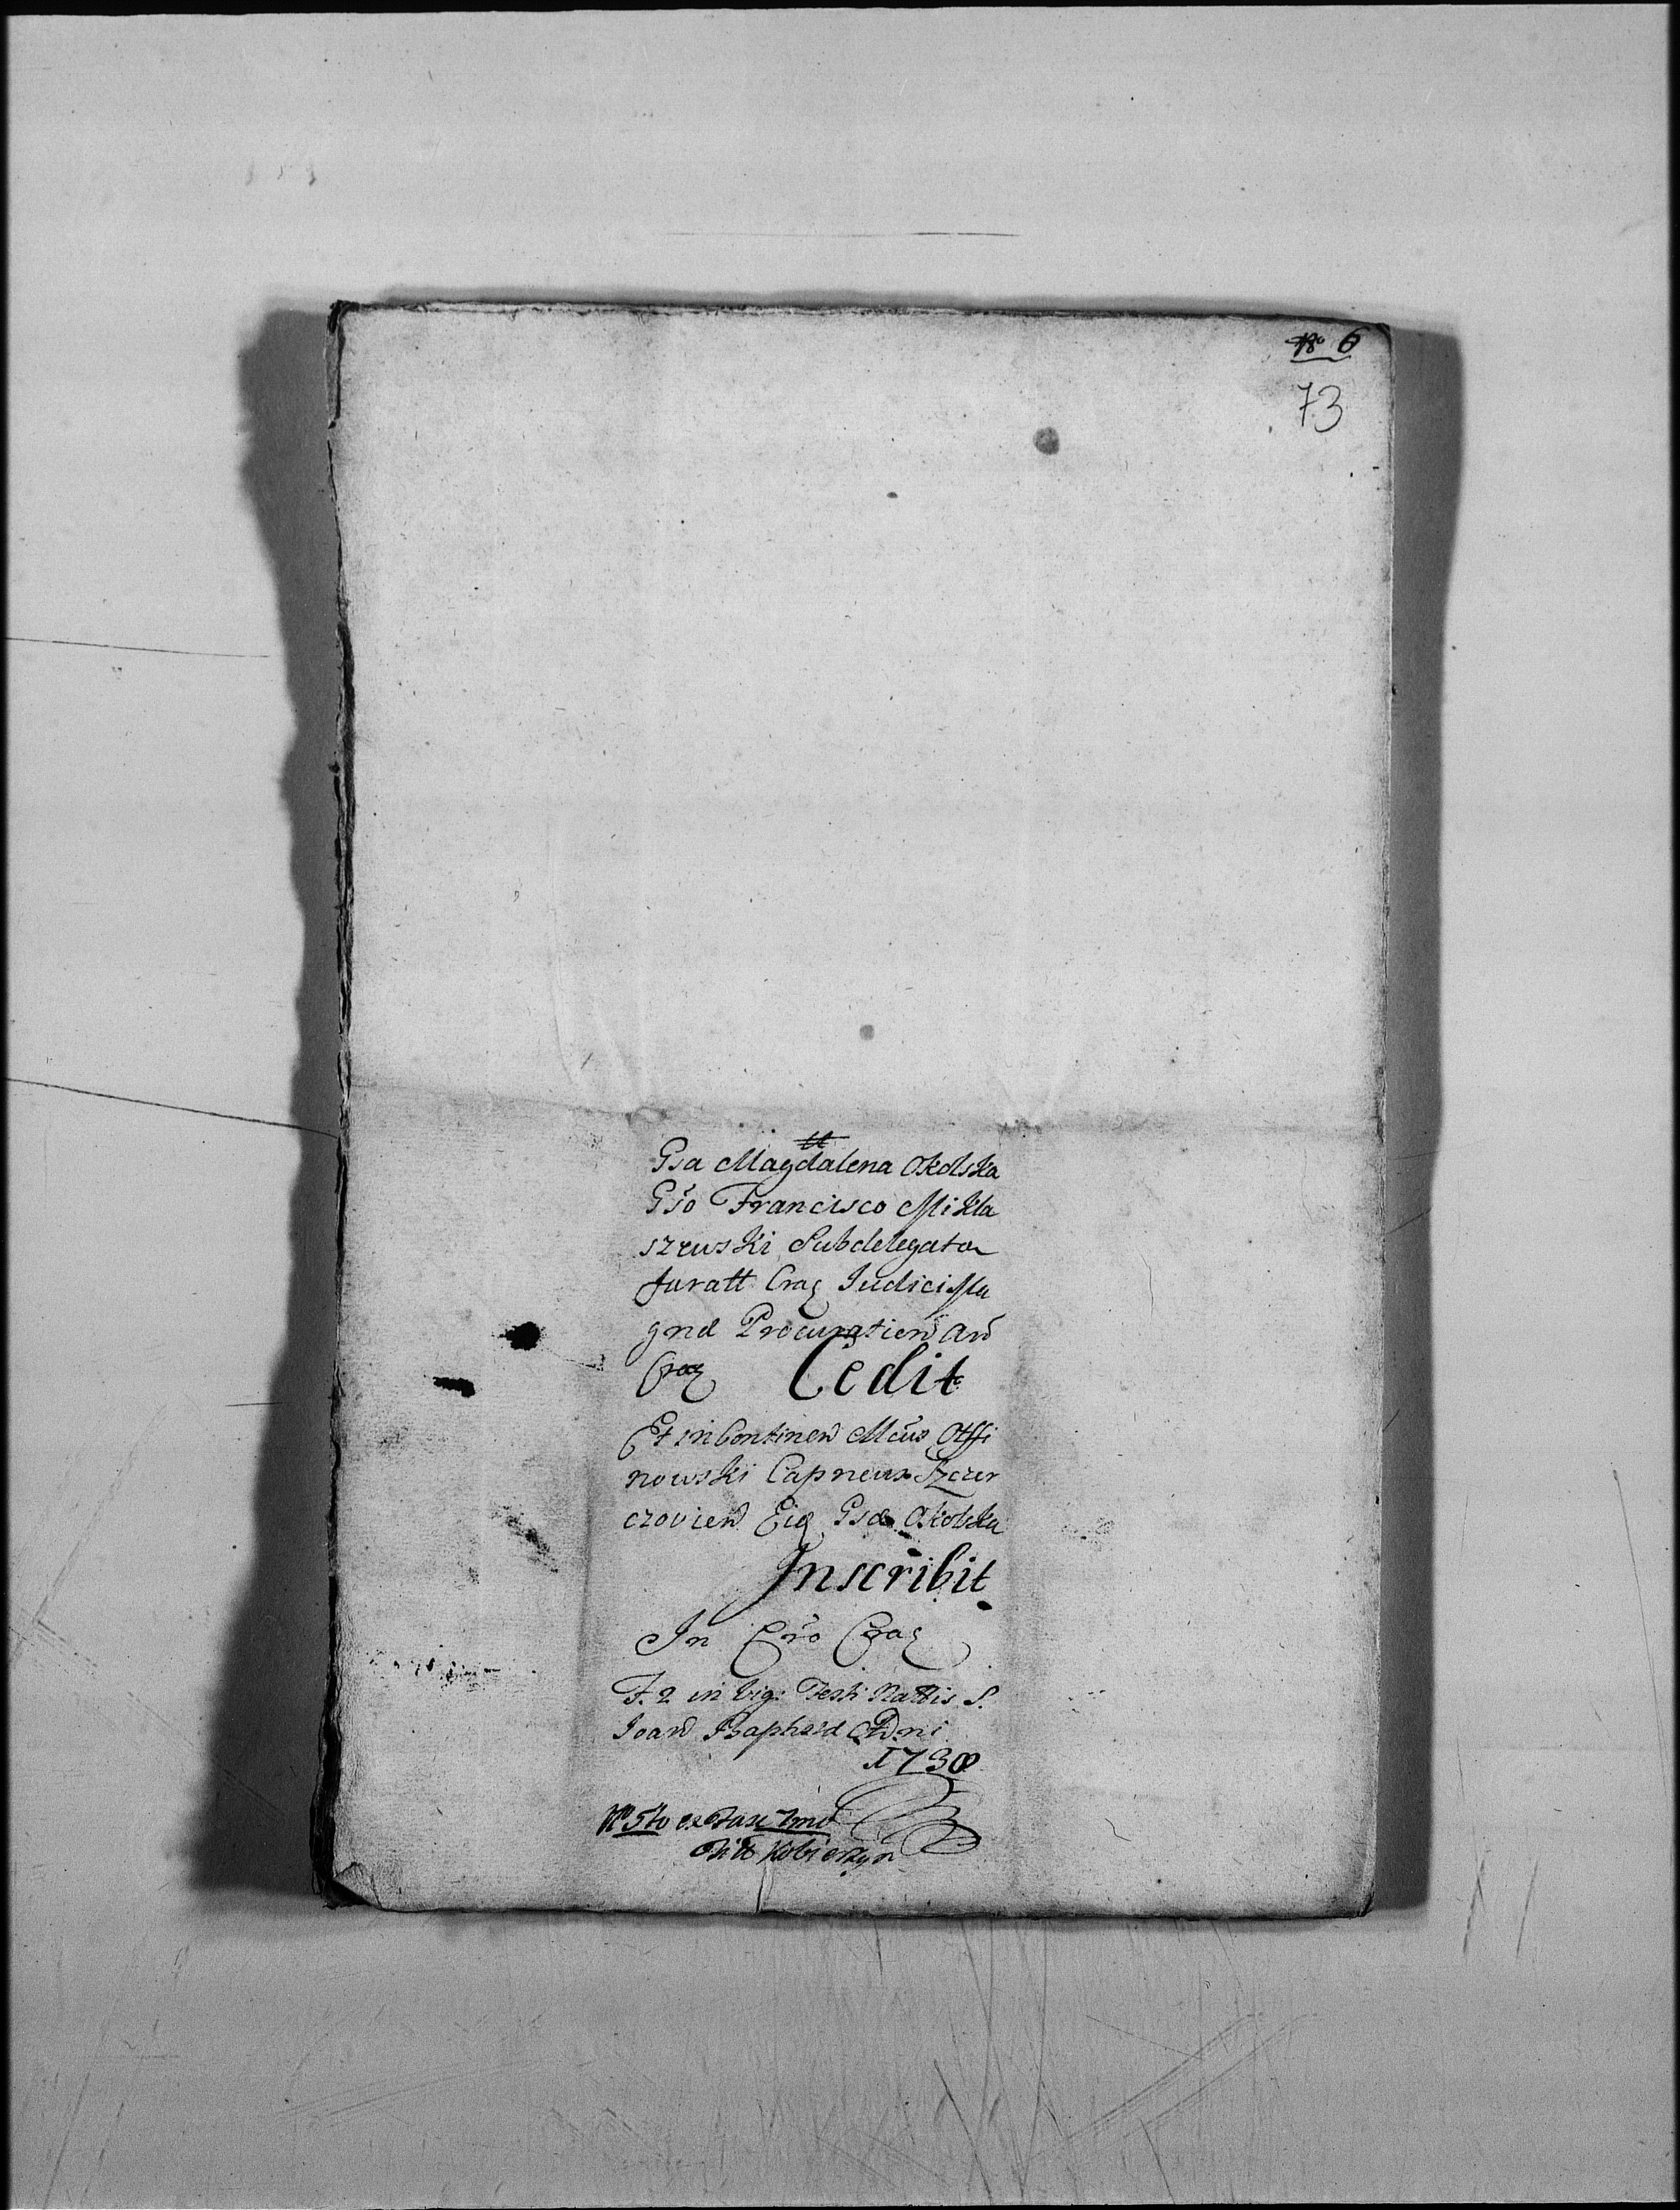 No 6
73
tt
Gsa Magdalena Okolska
Gso Francisco Mikla
szewski Subdelegato
Juratt Crac Judici Ma
gnd Procuratien arc
Crac Cedit
Et in Continen Mcus Otffi
nowski Capneus Szczer
czovien Eid Gsae Okolska
Inscribit
In Cro Crac
F. 2 in Vig: Festi Nattis S.
Joan Baphstd A Dni
1730
No 5to ex Fasc 7mo
Titt Kobierzyn